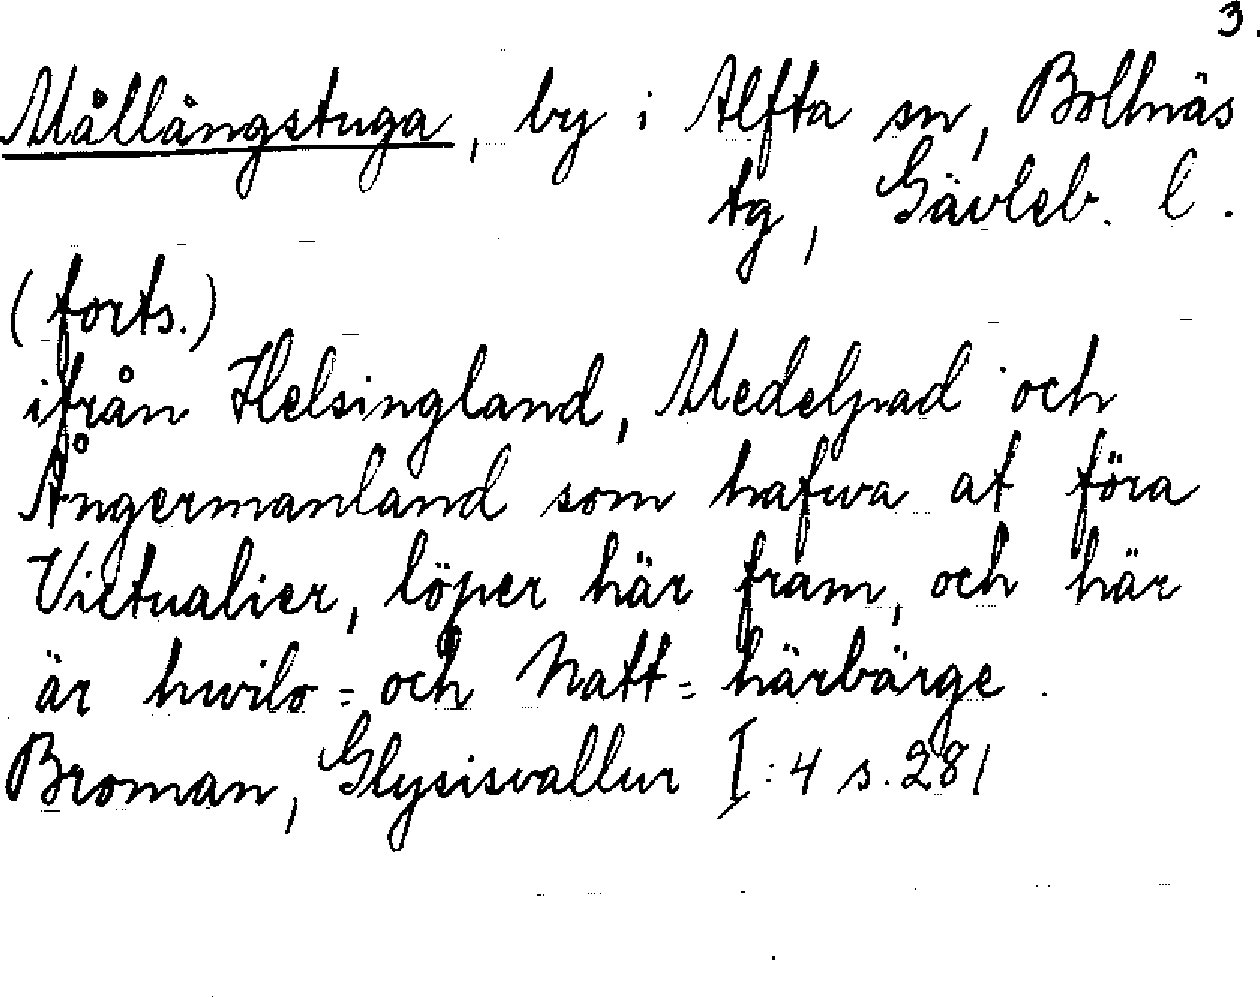 3.
Mållångstuga, by i Alfta sn, Bollnäs
tg, Gävleb. l.
(forts.)
ifrån Helsingland, Medelpad och
Ångermanland som hafwa at föra
Victualier, löper här fram, och här
är hwilo= och Natt=härbärge.
Broman, Glysisvallur I:4 s. 281